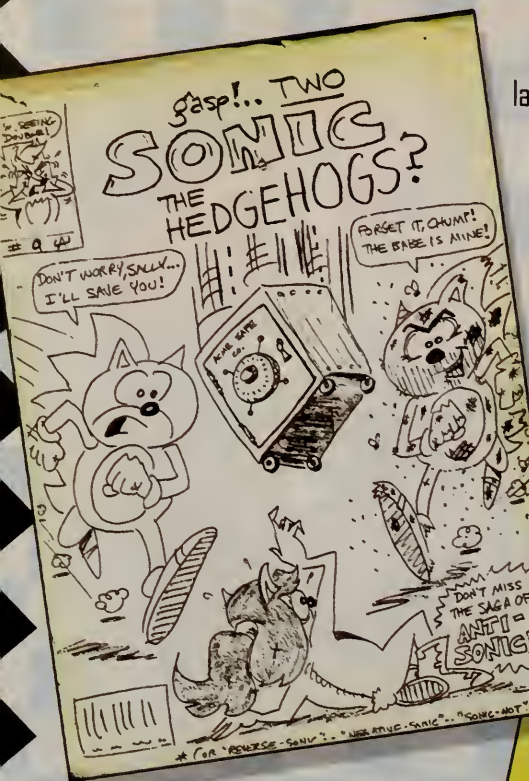 gasp!.. TWO
SONIC
THE
HEDGEHOGS?
SEEING
DOUBLE!
# 9
DON'T WORRY, SALLY...
I'LL SAVE YOU!
FORGET IT, CHUMP!
THE BABE IS MINE!
ACME SAFE
CO.
DON'T MISS
THE SAGA OF
ANTI-
SONIC
* (OR "REVERSE-SONIC".. "NEGATIVE-SONIC".. "SONIC-NOT"
la